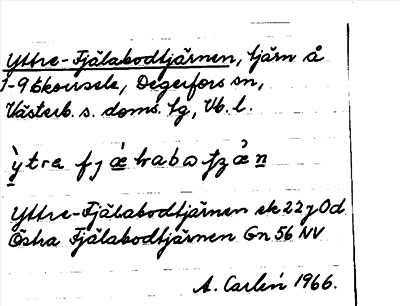 Yttre-Fjälabodtjärnen, tjärn å
1-9 Ekorrsele, Degerfors sn,
Västerb. s. doms. tg, Vb. l.
Yttre-Fjälabodtjärnen ek 22 J 0d
Östra Fjälabodtjärnen Gn 56 NV
A. Carlén 1966.